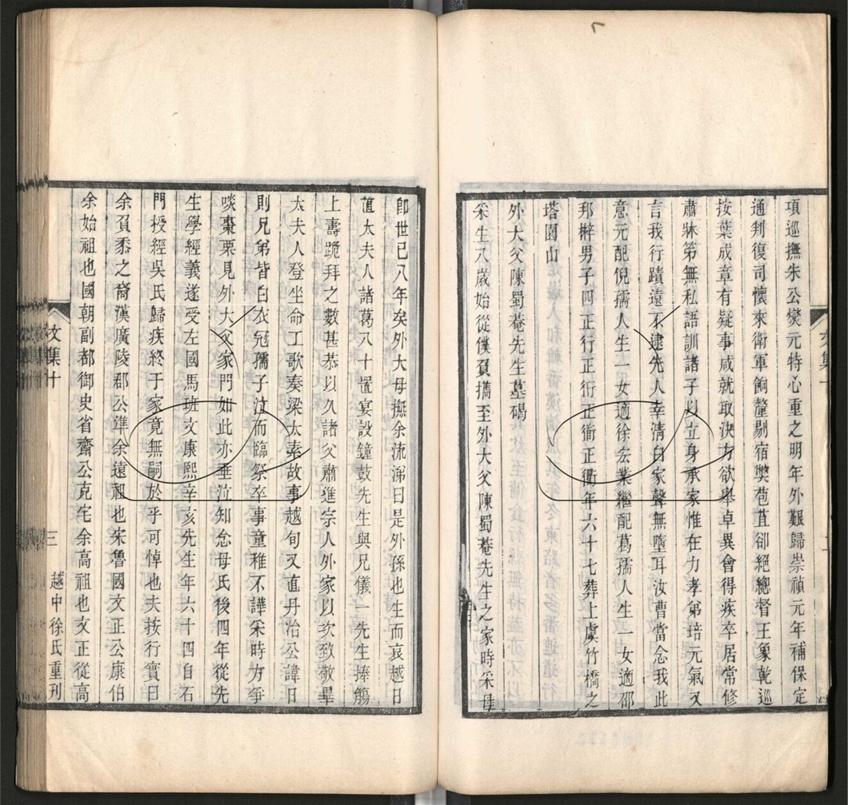 項巡撫朱公燮元特心重之明年外艱歸崇禎元年補保定
通判復司懷來衛軍餉釐剔宿獘苞苴卻絕總督王象乾巡
按葉成章有疑事咸就取決方欲舉卓異會得疾卒居常修
肅牀笫無私語訓諸子以立身承家惟在力孝弟培元氣又
言我行蹟遠不逮先人幸清白家聲無墮耳汝曹當念我此
意元配倪孺人生一女適徐宏業繼配葛孺人生一女適邵
邦榟男子四正行正衍正衙正衢年六十七葬上虞竹橋之
塔園山
外大父陳蜀菴先生墓碣
采生八歲始從僕負攜至外大父陳蜀菴先生之家時采母
卽世已八年矣外大母撫余流涕曰是外孫也生而哀越日
值太夫人諸葛八十慴宴設鐘鼓先生與兄儀一先生捧觴
上壽跪拜之數甚恭以久諸父肅進宗人外家以次致敬畢
太夫人登坐命工歌奏梁太素故事越旬又值丹冶公諱日
則兄弟皆白衣冠孺子泣而臨祭卒事童稚不譁采時方爭
啖棗栗見外大父家門如此亦垂泣知念母氏後四年從先
生學經義遂受左國馬班文康熙辛亥先生年六十四自石
門授經吳氏歸疾終于家竟無嗣於乎可悼也夫按行實曰
余負黍之裔漢廣陵郡公準余遠祖也宋魯國文正公康伯
余始祖也國朝副都御史省齋公克宅余高祖也文正從高
文集十
三
越中徐氏重刊